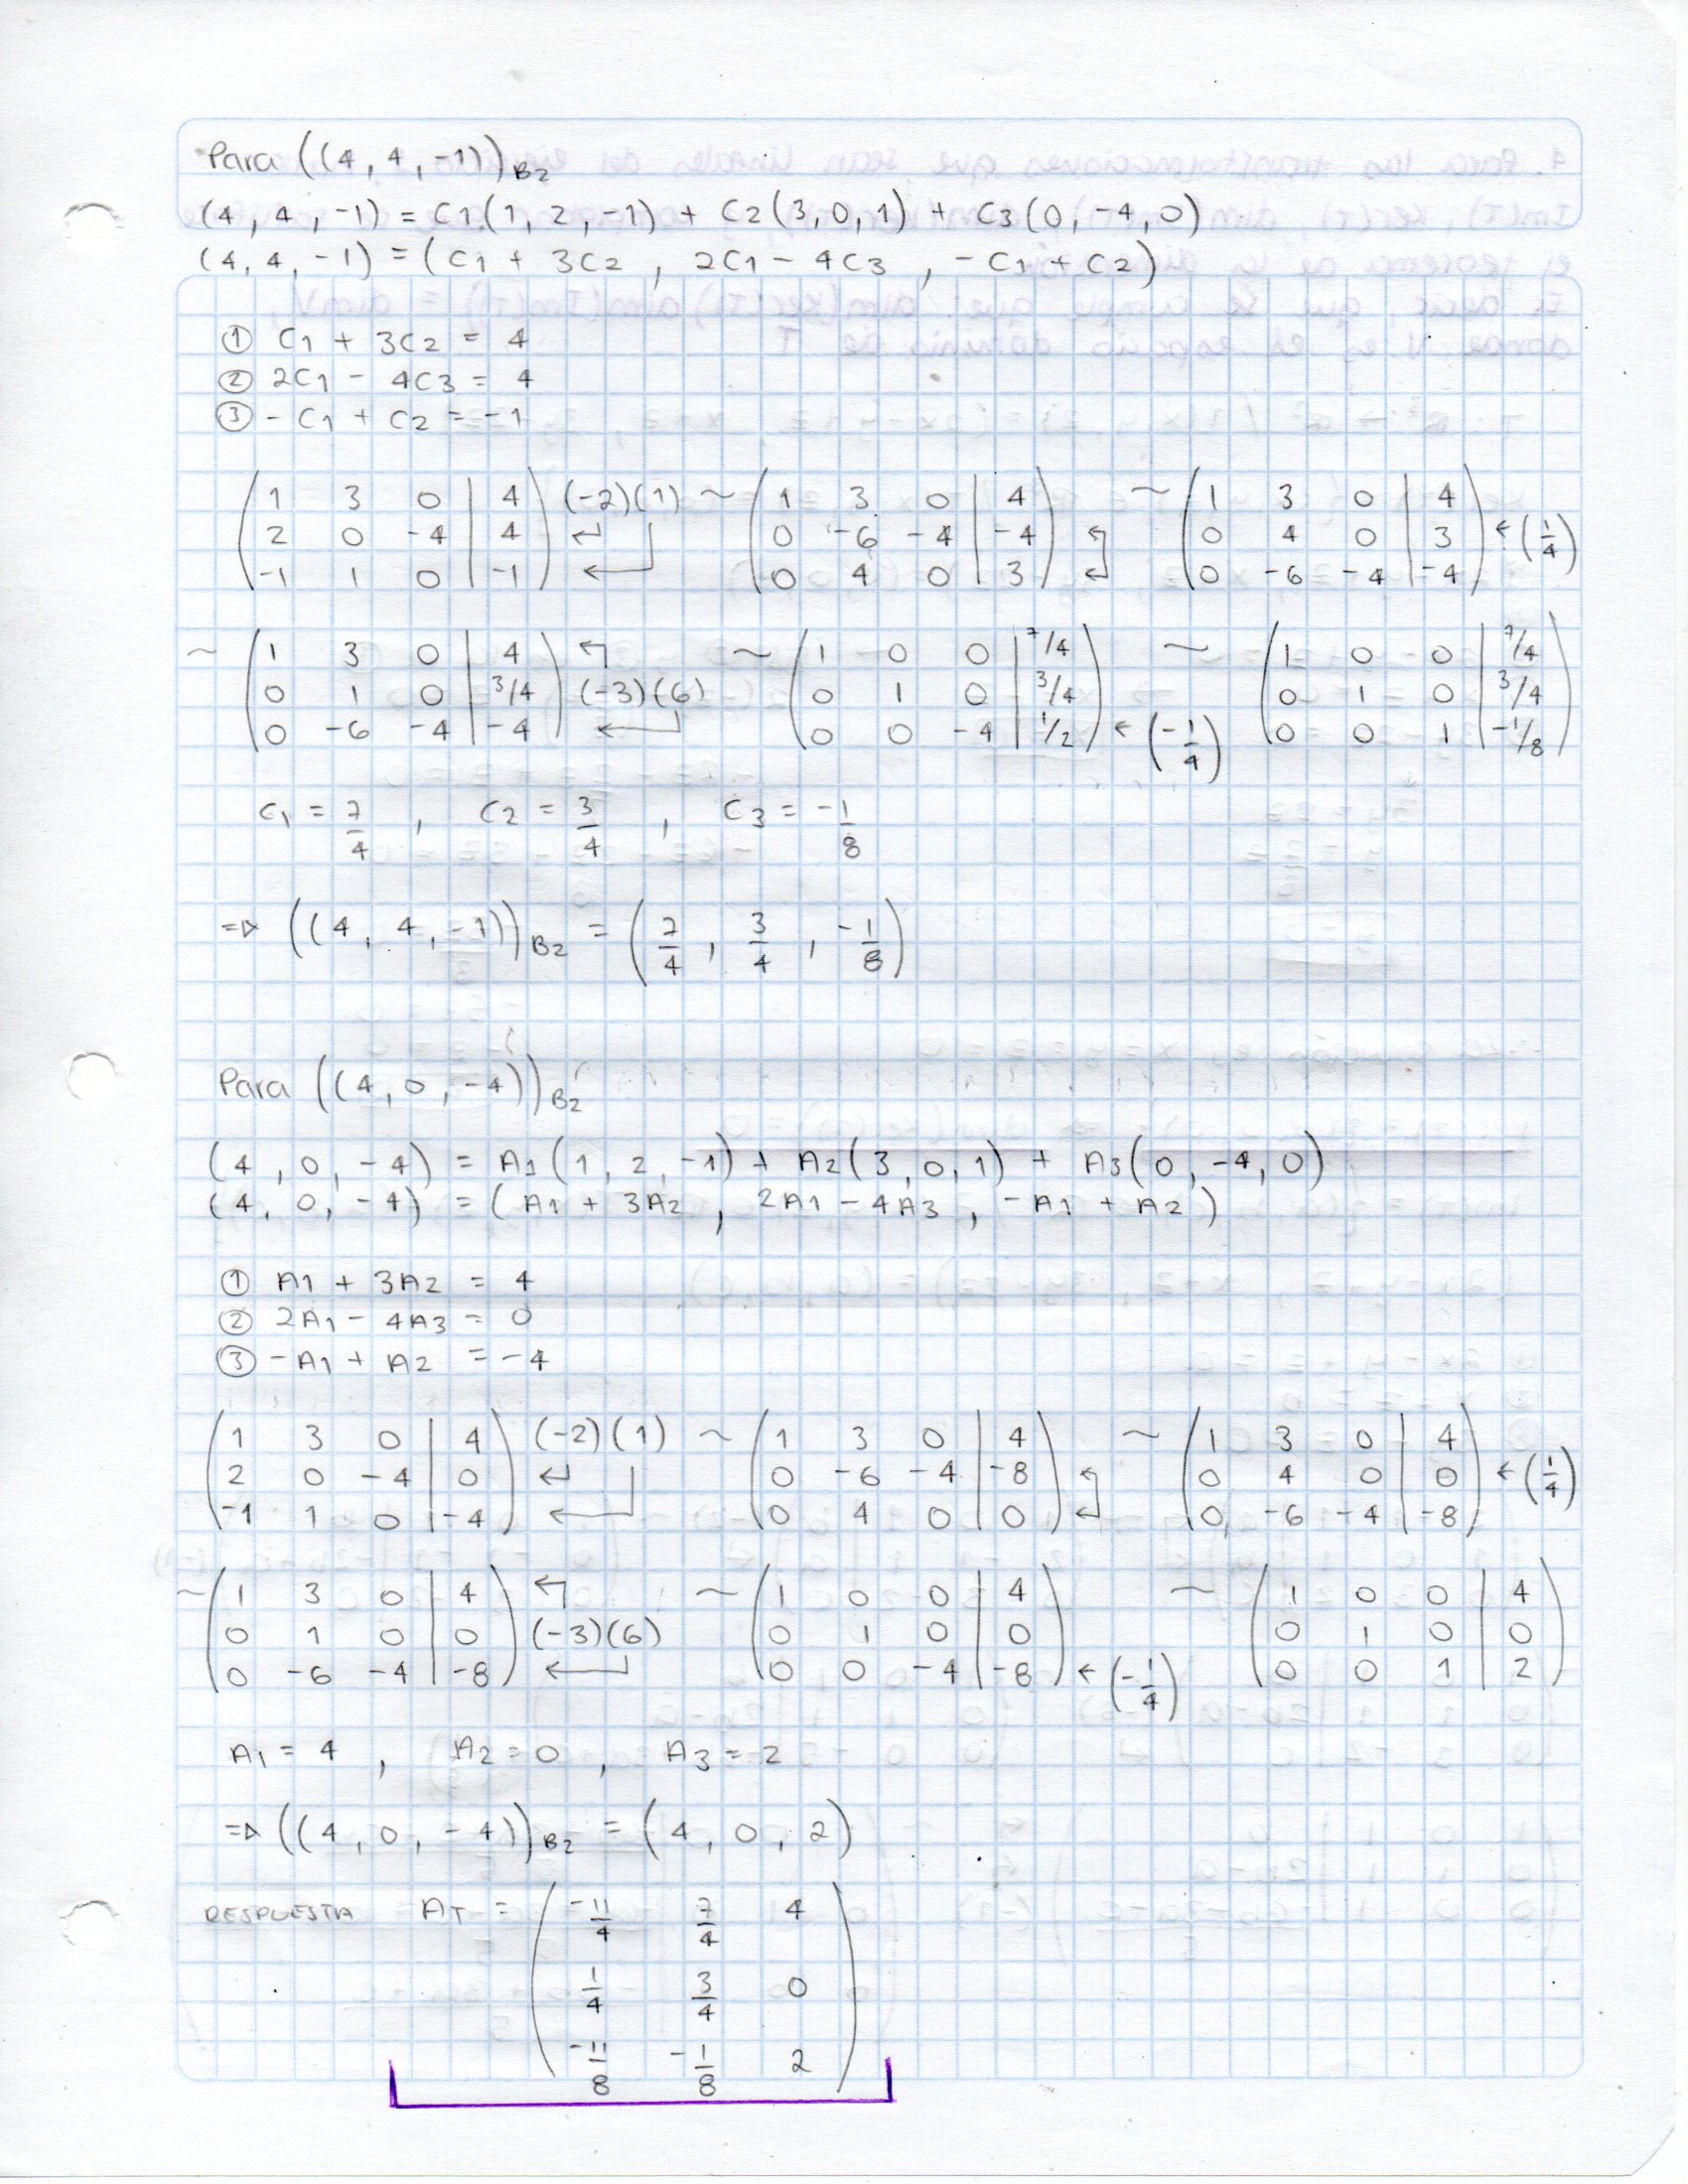 Para ((4, 4, -1))B2
(4, 4, -1) = C1(1, 2, -1) + C2(3, 0, 1) + C3(0, -4, 0)
(4, 4, -1) = (C1 + 3C2, 2C1 - 4C3, -C1 + C2)
① C1 + 3C2 = 4
② 2C1 - 4C3 = 4
③ -C1 + C2 = -1
( 1 3 0 | 4 ) (-2)(1) ~ ( 1 3 0 | 4 ) ~ ( 1 3 0 | 4 )
( 2 0 -4 | 4 ) ↵ ( 0 -6 -4 | -4 ) ↰ ( 0 4 0 | 3 ) ← (1/4)
( -1 1 0 | -1 ) ← ( 0 4 0 | 3 ) ↵ ( 0 -6 -4 | -4 )
~ ( 1 3 0 | 4 ) ↰ ~ ( 1 0 0 | 7/4 ) ~ ( 1 0 0 | 7/4 )
( 0 1 0 | 3/4 ) (-3)(6) ( 0 1 0 | 3/4 ) ( 0 1 0 | 3/4 )
( 0 -6 -4 | -4 ) ← ( 0 0 -4 | 1/2 ) ← (-1/4) ( 0 0 1 | -1/8 )
C1 = 7/4 , C2 = 3/4 , C3 = -1/8
=> ((4, 4, -1))B2 = (7/4, 3/4, -1/8)
Para ((4, 0, -4))B2
(4, 0, -4) = A1(1, 2, -1) + A2(3, 0, 1) + A3(0, -4, 0)
(4, 0, -4) = (A1 + 3A2, 2A1 - 4A3, -A1 + A2)
① A1 + 3A2 = 4
② 2A1 - 4A3 = 0
③ -A1 + A2 = -4
( 1 3 0 | 4 ) (-2)(1) ~ ( 1 3 0 | 4 ) ~ ( 1 3 0 | 4 )
( 2 0 -4 | 0 ) ↵ ( 0 -6 -4 | -8 ) ↰ ( 0 4 0 | 0 ) ← (1/4)
( -1 1 0 | -4 ) ← ( 0 4 0 | 0 ) ↵ ( 0 -6 -4 | -8 )
~ ( 1 3 0 | 4 ) ↰ ~ ( 1 0 0 | 4 ) ~ ( 1 0 0 | 4 )
( 0 1 0 | 0 ) (-3)(6) ( 0 1 0 | 0 ) ( 0 1 0 | 0 )
( 0 -6 -4 | -8 ) ← ( 0 0 -4 | -8 ) ← (-1/4) ( 0 0 1 | 2 )
A1 = 4 , A2 = 0 , A3 = 2
=> ((4, 0, -4))B2 = (4, 0, 2)
RESPUESTA AT = ( -11/4 7/4 4 )
( 1/4 3/4 0 )
( -11/8 -1/8 2 )